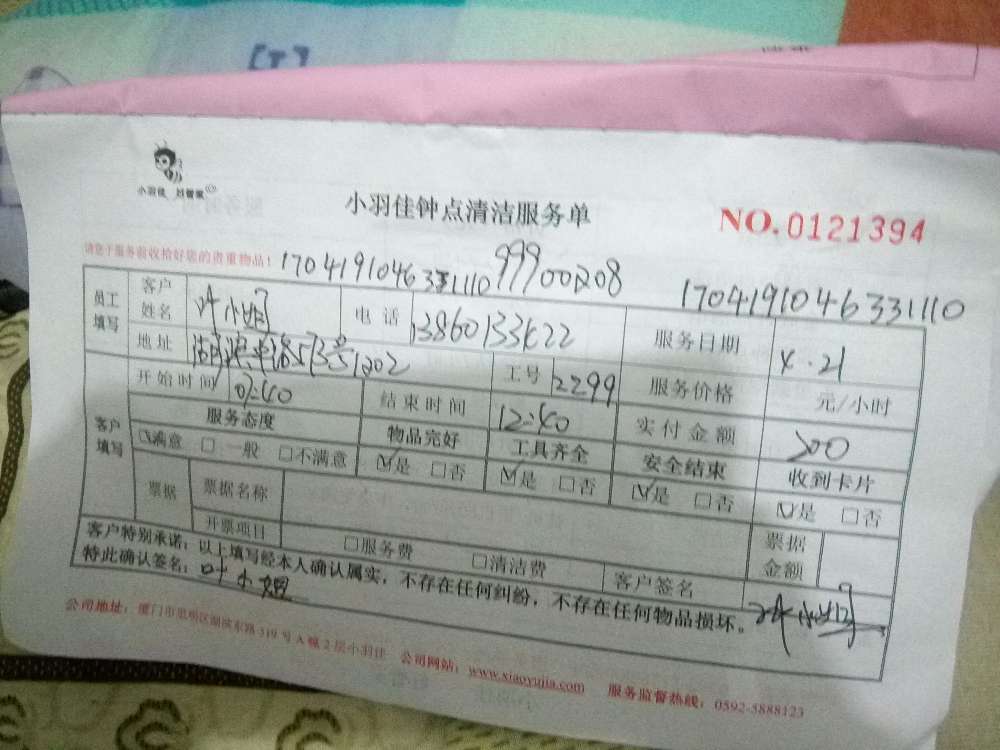 小羽佳 好管家
小羽佳钟点清洁服务单
NO.0121394
请您于服务前收拾好您的贵重物品!
1704191046331110 99900208 1704191046331110
员工填写 客户姓名 电话 服务日期 4.21
地址 工号 2299 服务价格 元/小时
开始时间 结束时间 12:40 实付金额 200
客户填写 服务态度 物品完好 工具齐全 安全结束 收到卡片
☑满意 □一般 □不满意 ☑是 □否 ☑是 □否 ☑是 □否 ☑是 □否
票据 票据名称 票据金额
开票项目 □服务费 □清洁费 客户签名
客户特别承诺:以上填写经本人确认属实,不存在任何纠纷,不存在任何物品损坏。
特此确认签名:
公司地址:厦门市思明区湖滨东路319号A幢2层小羽佳 公司网站:www.xiaoyujia.com 服务监督热线:0592-5888123